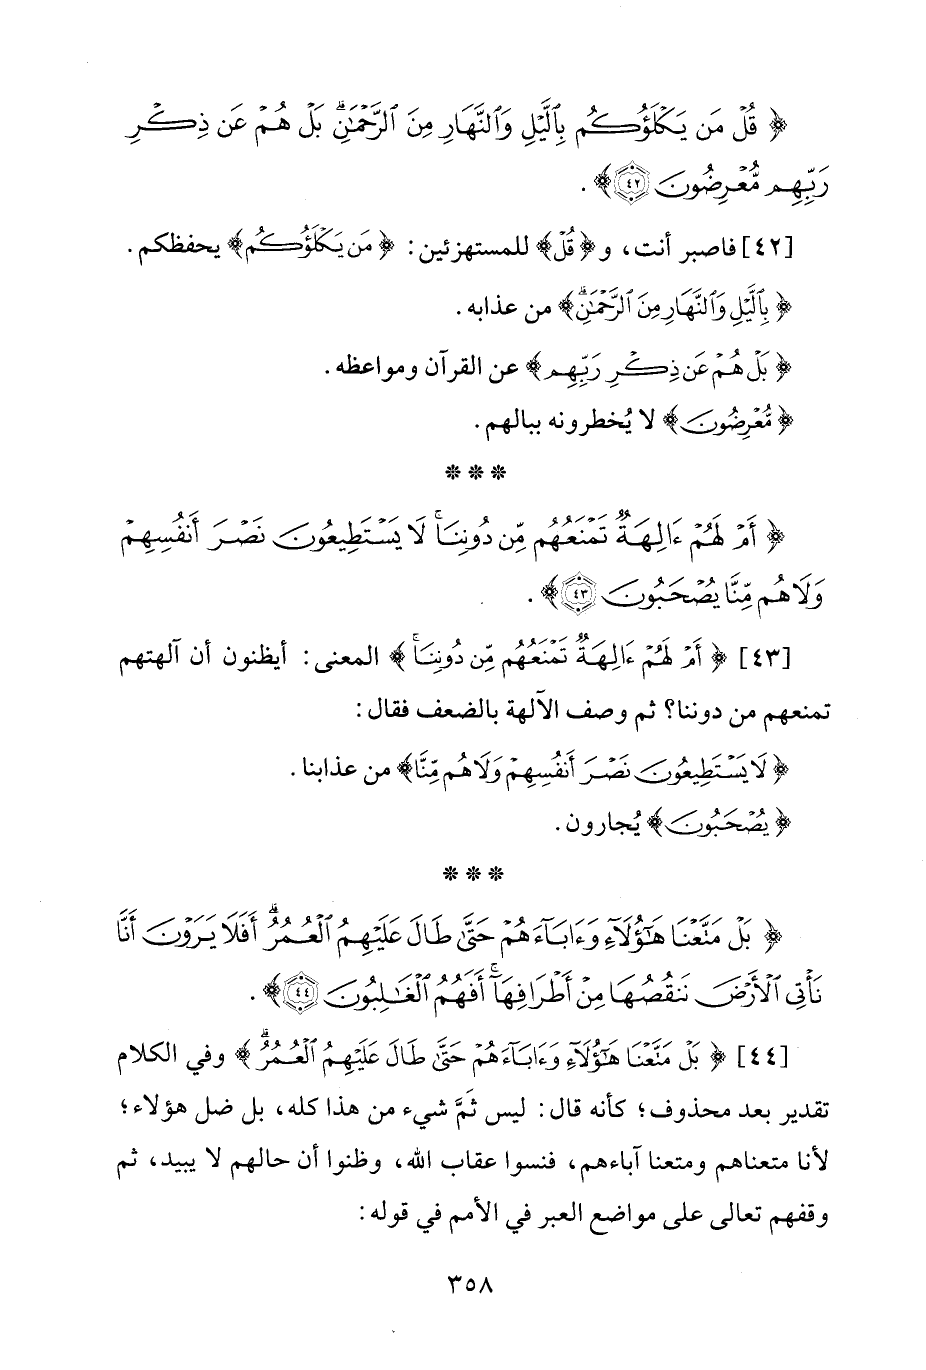 ﴿ قُلْ مَن يَكْلَؤُكُم بِٱلَّيْلِ وَٱلنَّهَارِ مِنَ ٱلرَّحْمَٰنِۗ بَلْ هُمْ عَن ذِكْرِ
رَبِّهِم مُّعْرِضُونَ ٤٢﴾ .
[٤٢] فاصبر أنت، و﴿قُلْ﴾ للمستهزئين: ﴿مَن يَكْلَؤُكُم﴾ يحفظكم.
﴿بِٱلَّيْلِ وَٱلنَّهَارِ مِنَ ٱلرَّحْمَٰنِۗ﴾ من عذابه.
﴿بَلْ هُمْ عَن ذِكْرِ رَبِّهِم﴾ عن القرآن ومواعظه.
﴿مُّعْرِضُونَ﴾ لا يُخطرونه ببالهم.
***
﴿ أَمْ لَهُمْ ءَالِهَةٌ تَمْنَعُهُم مِّن دُونِنَاۚ لَا يَسْتَطِيعُونَ نَصْرَ أَنفُسِهِمْ
وَلَا هُم مِّنَّا يُصْحَبُونَ ٤٣﴾ .
[٤٣] ﴿أَمْ لَهُمْ ءَالِهَةٌ تَمْنَعُهُم مِّن دُونِنَاۚ﴾ المعنى: أيظنون أن آلهتهم
تمنعهم من دوننا؟ ثم وصف الآلهة بالضعف فقال:
﴿لَا يَسْتَطِيعُونَ نَصْرَ أَنفُسِهِمْ وَلَا هُم مِّنَّا﴾ من عذابنا.
﴿يُصْحَبُونَ﴾ يُجارون.
***
﴿ بَلْ مَتَّعْنَا هَٰٓؤُلَآءِ وَءَابَآءَهُمْ حَتَّىٰ طَالَ عَلَيْهِمُ ٱلْعُمُرُۗ أَفَلَا يَرَوْنَ أَنَّا
نَأْتِى ٱلْأَرْضَ نَنقُصُهَا مِنْ أَطْرَافِهَآۚ أَفَهُمُ ٱلْغَٰلِبُونَ ٤٤﴾ .
[٤٤] ﴿بَلْ مَتَّعْنَا هَٰٓؤُلَآءِ وَءَابَآءَهُمْ حَتَّىٰ طَالَ عَلَيْهِمُ ٱلْعُمُرُۗ﴾ وفي الكلام
تقدير بعد محذوف؛ كأنه قال: ليس ثَمَّ شيء من هذا كله، بل ضل هؤلاء؛
لأنا متعناهم ومتعنا آباءهم، فنسوا عقاب الله، وظنوا أن حالهم لا يبيد، ثم
وقفهم تعالى على مواضع العبر في الأمم في قوله:
٣٥٨